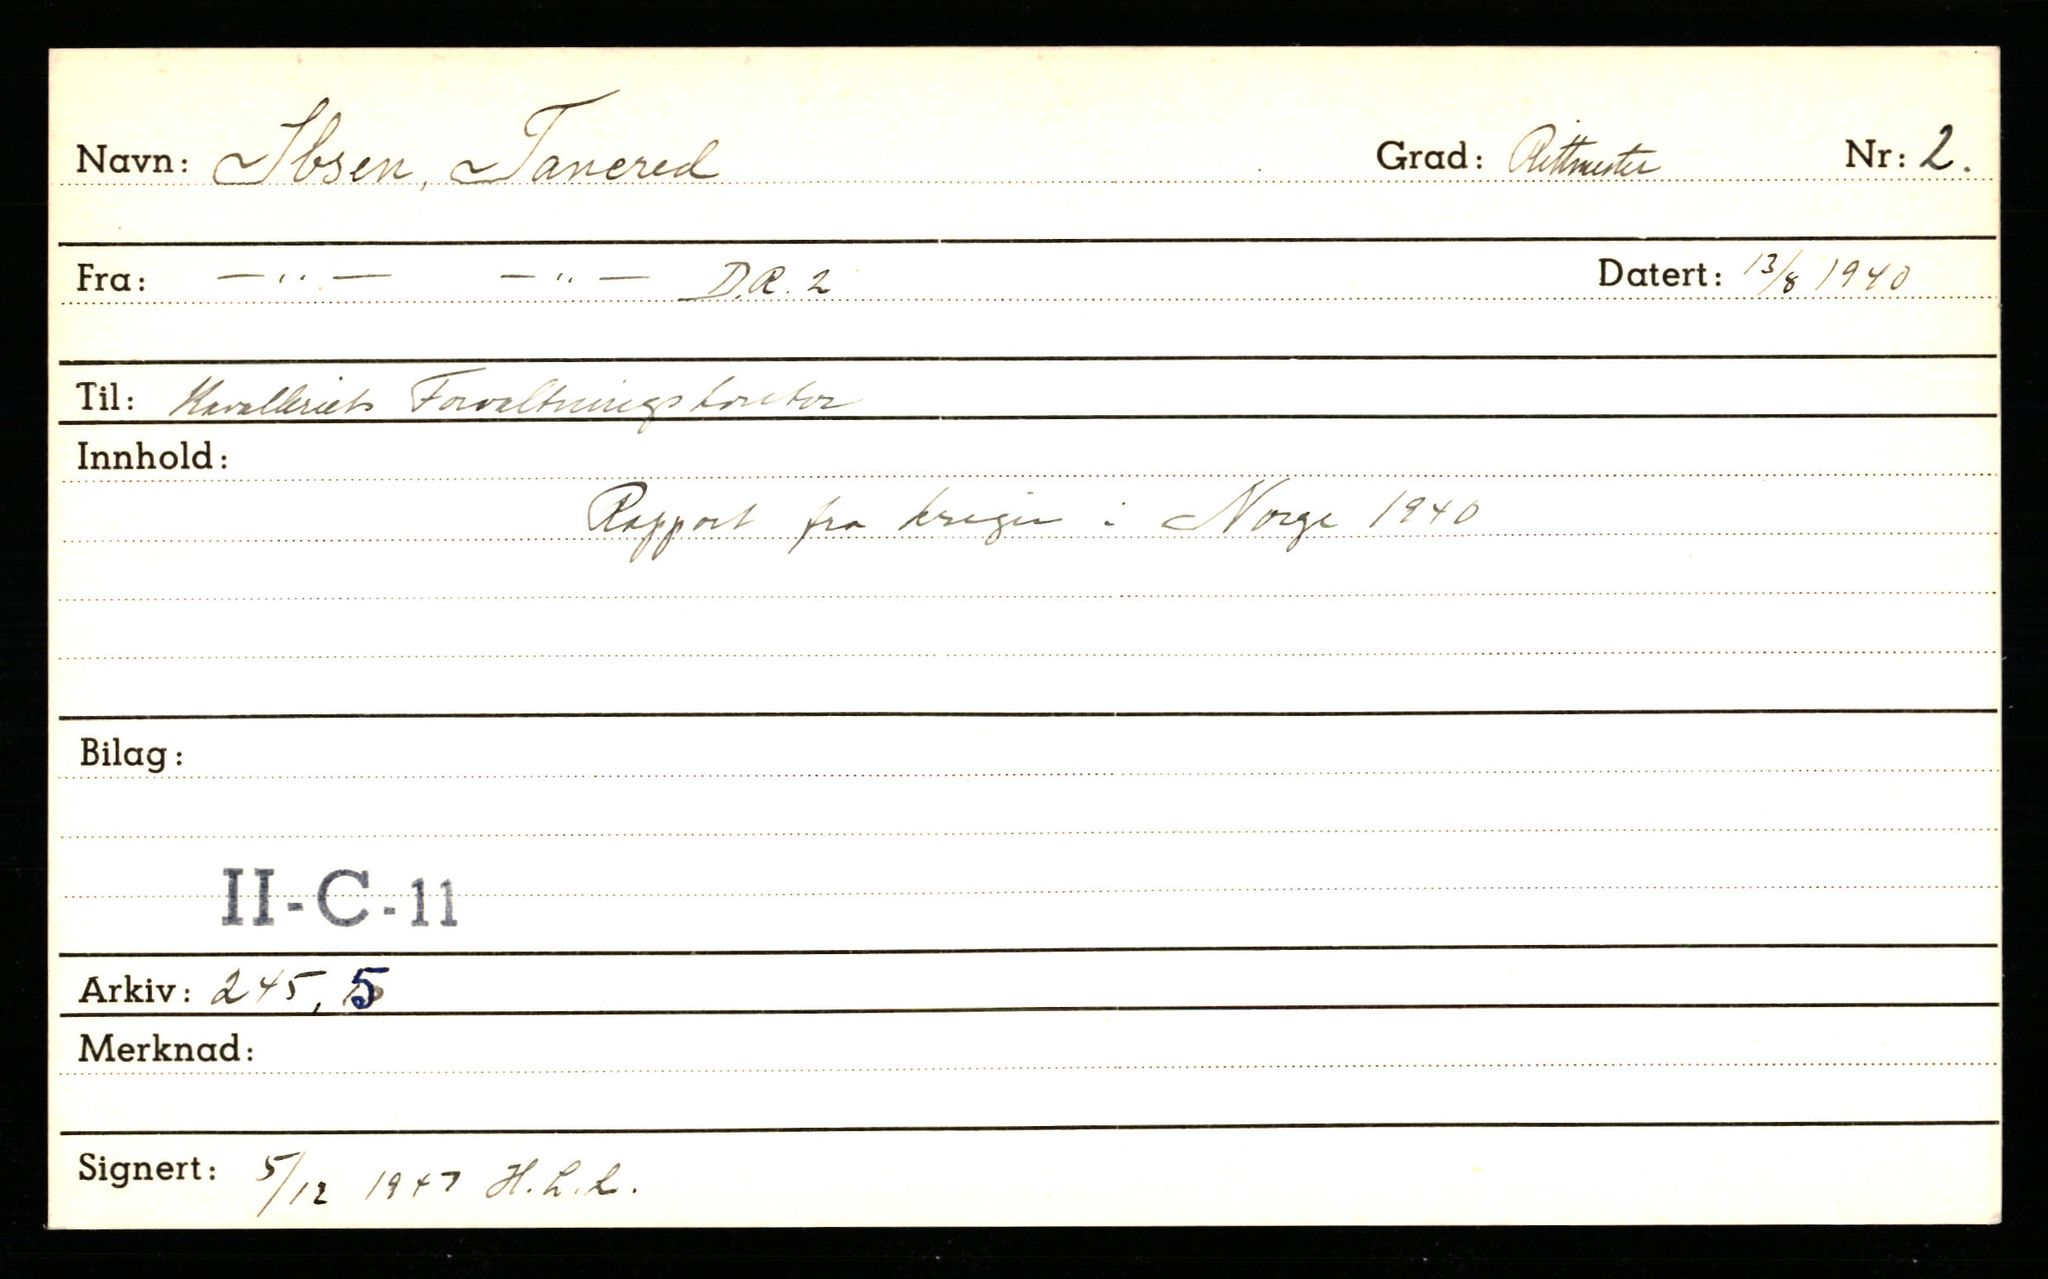 Navn: Ibsen, Tancred Grad: Rittmester Nr: 2.
Fra: —"— —"— D.R. 2 Datert: 13/8 1940
Til: Kavalleriets Forvaltningskontor
Innhold:
Rapport fra krigen i Norge 1940
Bilag:
II-C-11
Arkiv: 245, 5
Merknad:
Signert: 5/12 1947 H.L.L.